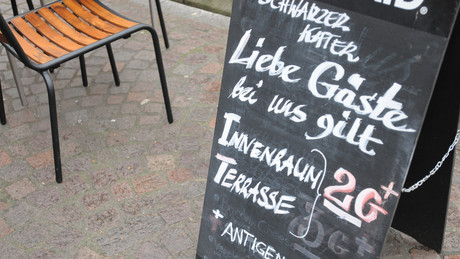 SCHWARZER
Liebe Gäste
bei uns gilt
INNENRAUM
TERRASSE
2G+
+ ANTIGEN